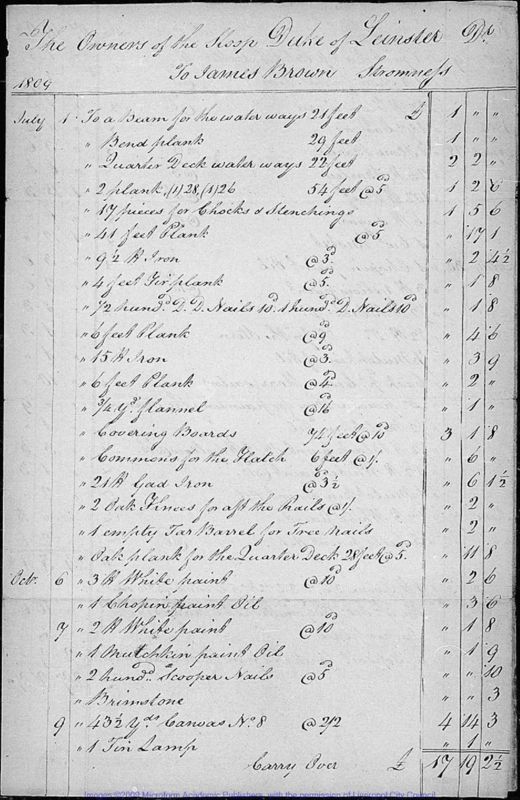 The Owners of the Sloop Duke of Leinster Dr.
1809 To James Brown Stromness
July 1 To a Beam for the water ways 21 feet £ 1 " "
" Bend plank 29 feet 1 " "
" Quarter Deck water ways 22 feet 2 2 "
" 2 plank, (1) 28, (1) 26 54 feet @ 5d 1 2 6
" 17 pieces for Chocks & Stenchings 1 5 6
" 41 feet Plank @ 5d " 17 1
" 9½ lb Iron @ 3d " 2 4½
" 4 feet Fir plank @ 5d " 1 8
" ½ hund. D. D. Nails 10d. 1 hund. D. Nails 10d " 1 8
" 6 feet Plank @ 9d " 4 6
" 15 lb Iron @ 3d " 3 9
" 6 feet Plank @ 4d " 2 "
" ¾ Yd. flannel @ 16d " 1 "
" Covering Boards 74 feet @ 10d 3 1 8
" Commons for the Hatch 6 feet @ 1/. " 6 "
" 21 lb Gad Iron @ 3½d " 6 1½
" 2 Oak for aft the Rails @ 1/. " 2 "
" 1 empty Tar Barrel for Tree nails " 2 "
" Oak plank for the Quarter Deck 28 feet @ 5d. " 11 8
Octr. 6 " 3 lb White paint @ 10d " 2 6
" 1 Chopin paint Oil " 3 6
7 " 2 lb White paint @ 10d " 1 8
" 1 Mutchkin paint Oil " 1 9
" 2 hund. Scooper Nails @ 5d " " 10
" Brimstone " " 3
9 " 43½ Yds Canvas No. 8 @ 2/2 4 14 3
" 1 Tin Lamp " 1 "
Carry Over £ 17 19 2½
Images ©2009 Microform Academic Publishers, with the permission of Liverpool City Council